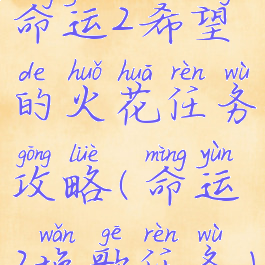 命运2希望
de huǒ huā rèn wù
的火花任务
gōng lüè mìng yùn
攻略(命运
wǎn gē rèn wù
2挽歌任务)